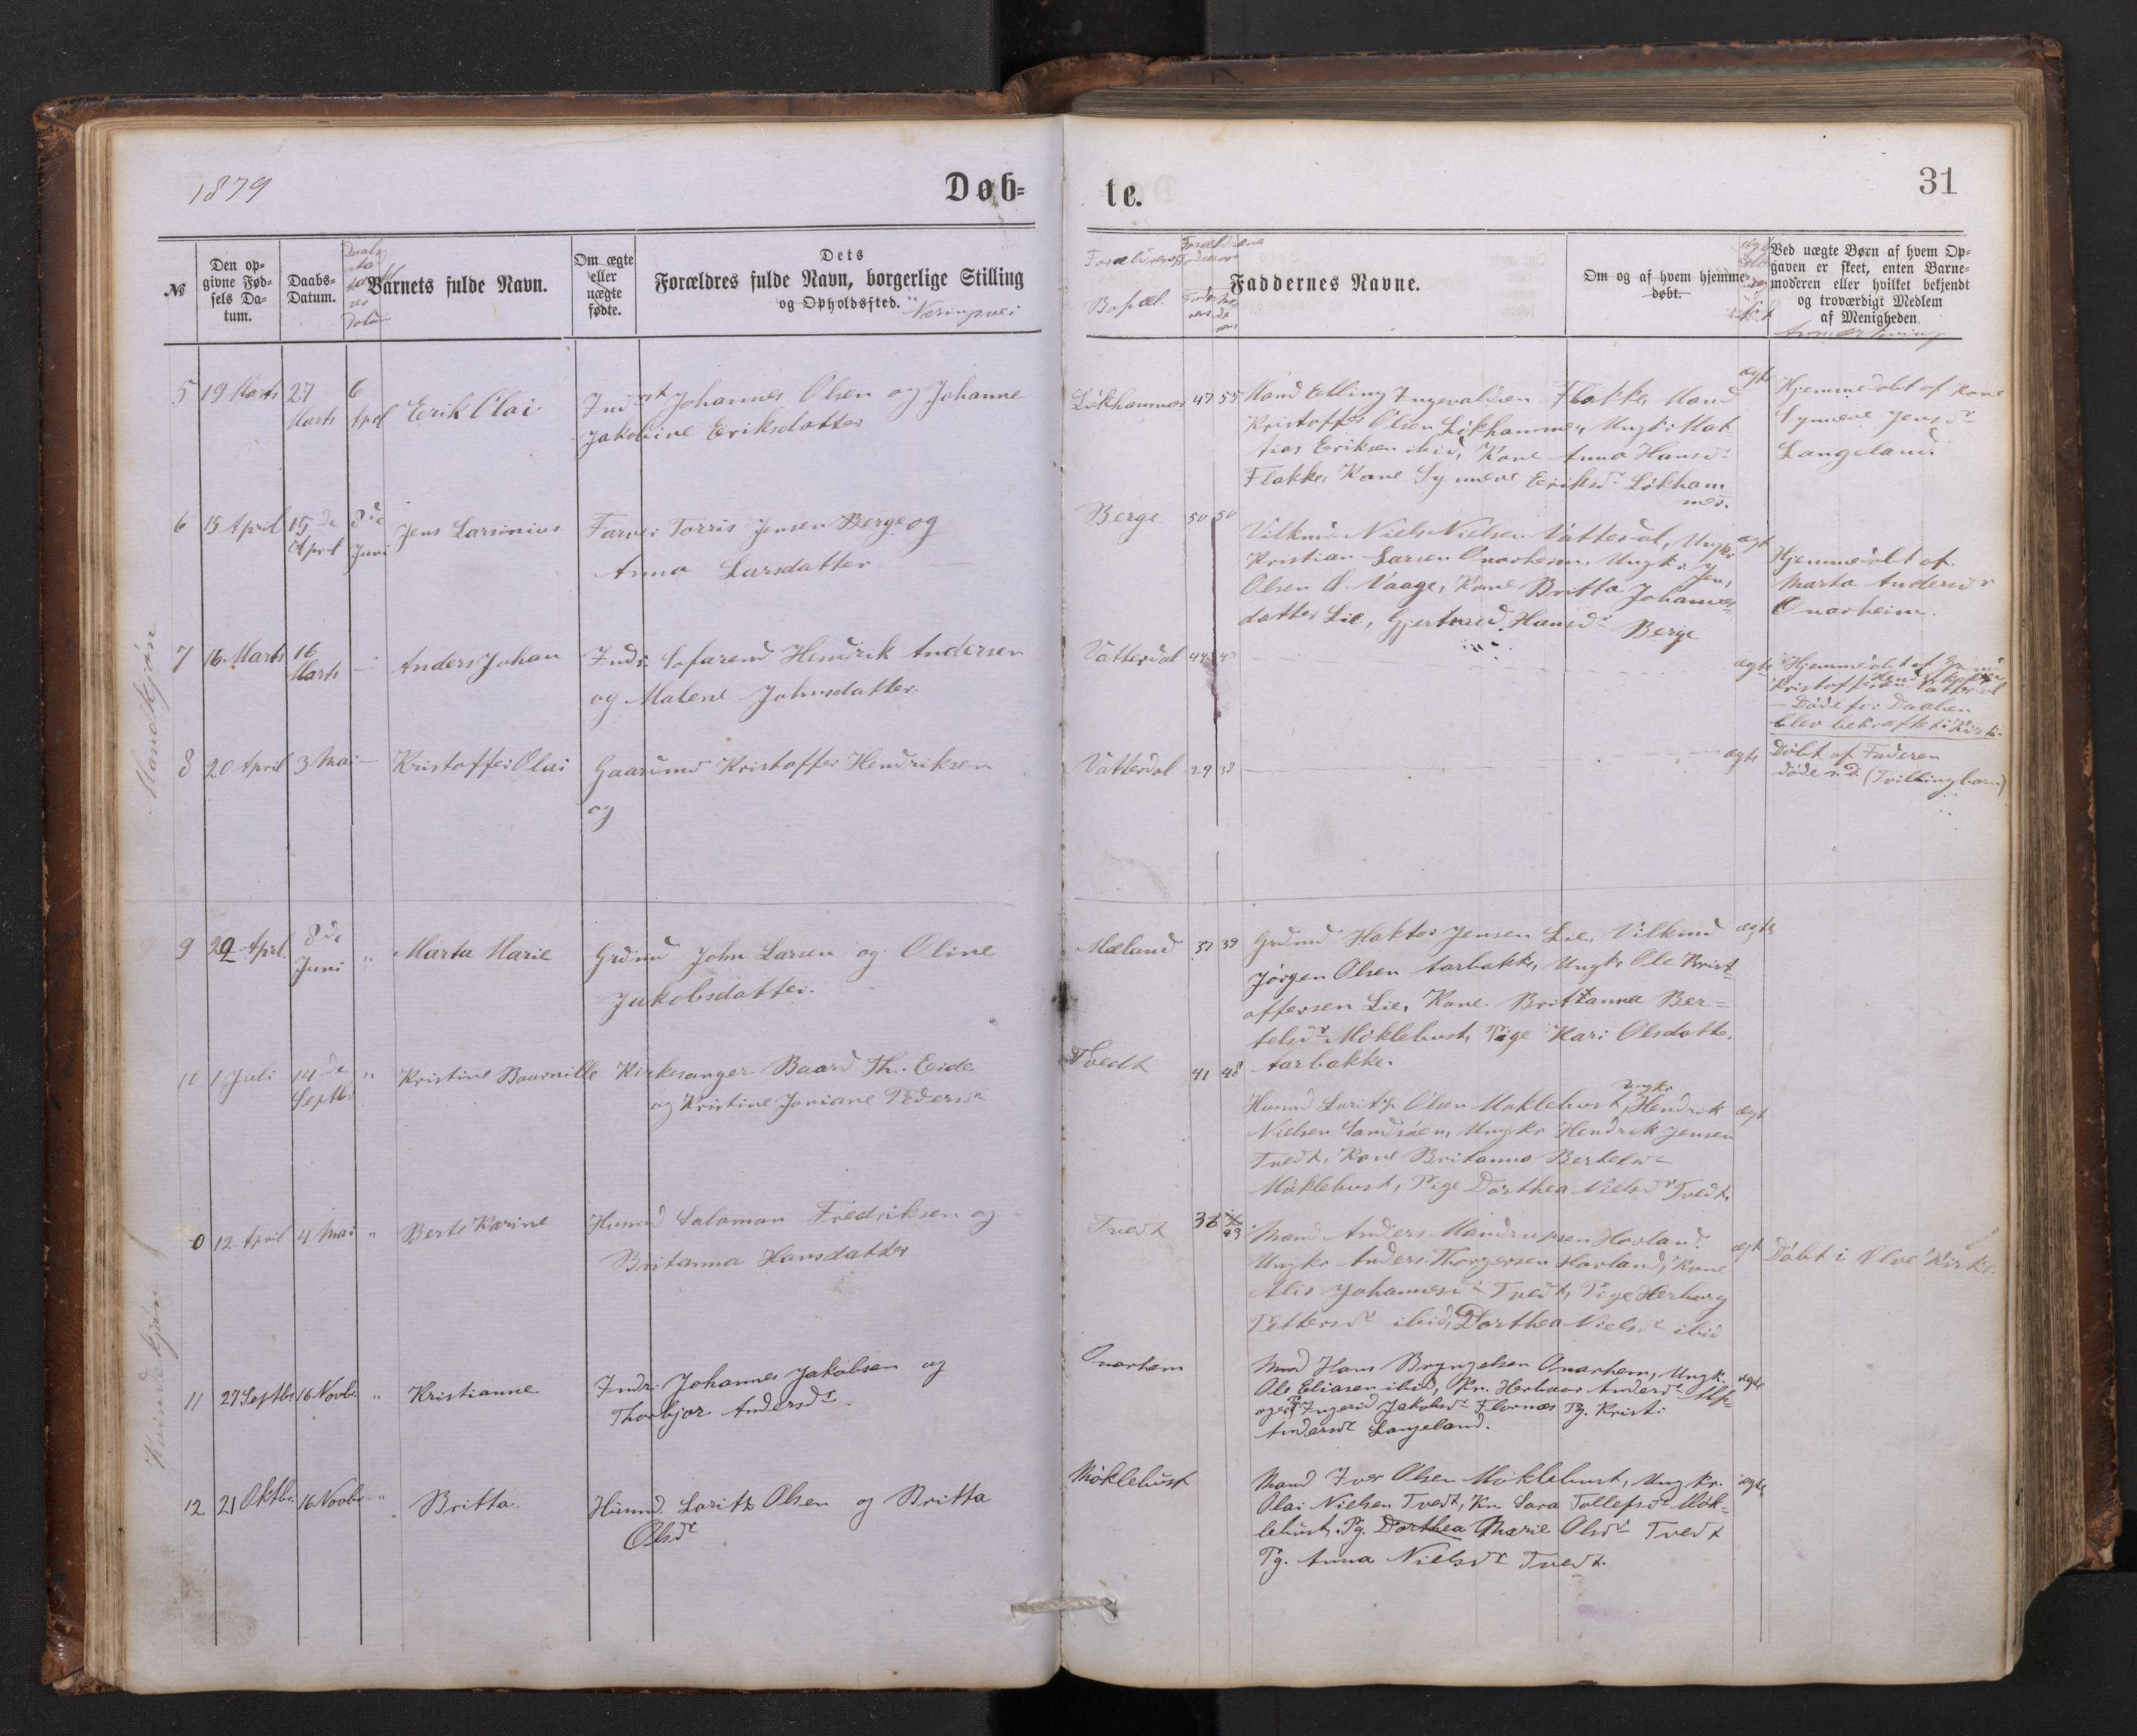 1879
Døb-
te.
31
№
Den op-
givne Fød-
sels Da-
tum.
Daabs-
Datum.
Barnets fulde Navn.
Om ægte
eller
uægte
fødte.
Dets
Forældres fulde Navn, borgerlige Stilling
og Opholdssted.
Næringsvei
Forældrenes
Bopæl.
Faddernes Navne.
Om og af hvem hjemme-
døbt.
Ved uægte Børn af hvem Op-
gaven er skeet, enten Barne-
moderen eller hvilket bekjendt
og troværdigt Medlem
af Menigheden.
Anmærkning
Mandkjøn
5 19 Marts 27 Marts 6 April Erik Olai
Johannes Olsen og Johanne
Jakobine Eriksdatter
Lökhammer 47 55 Mand Elling Ingevaldsen Flakke, Mand
Kristoffer Olsen Lökhammer, Ungk: Mat-
tias Eriksen ibid, Kone Anna Hansd.
Flakke, Kone Synneve Eriksd. Lökham
mer.
ægte Hjemmedøbt af Kone
Synneve Jensd.
Langeland.
6 15 April 15de April 8de Juni Jens Larsinius Farver Torris Jensen Berge og
Anna Larsdatter
Berge 50 50
Niels Nielsen Vatterdal, Ungkr
Kristian Larsen Onarheim, Ungkr. Jens
Olsen Vaage, Kone Britta Johannes-
datter Lie, Gjertrud Hansd. Berge
ægt Hjemmedøbt af
Marta Andersdr
Onarheim.
7 16 Marts 16 Marts — Anders Johan Indr. Hendrik Andersen
og Malene Johnsdatter.
Vatterdal 44
ægte Hjemmedøbt af
Kristoffer Vatterdal
— Døde før Daaben
blev bekræftet i Kirk.
8 20 April 3 Mai — Kristoffer Olai Gaardmd Kristoffer Hendriksen
og
Vatterdal 29 38
ægte Døbt af Faderen
døde s.d. (Tvillingbarn)
Kvindekjøn
9 29 April 8de Juni " Marta Marie Grdmd John Larsen og Oline
Jakobsdatter.
Mæland 37 39 Grdmd Haktor Jensen Lie,
Jørgen Olsen Aarbakke, Ungkr Ole Krist-
offersen Lie, Kone Britanna Ber-
telsdr Møklebust, Pige Kari Olsdatter
Aarbakke.
ægte
1 Juli 14de Septbr " Kristine Baarnille Kirkesanger Baard Th. Eide
og Kristine Joriane Pedersdr
Tvedt 41 48
Husmd Laritz Olsen Møklebust, Ungkr Hendrik
Nielsen Sandsöen, Ungkr Hendrik Jensen
Tvedt, Kone Britanna Bertelsdr
Møklebust, Pige Dorthea Nielsdr Tvedt.
ægt
0 12 April 4 Mai " Berte Karine Husmd Salomon Fredriksen og
Britanna Hansdatter
Tvedt 36 43 Mand Anders Mandrupsen Hovland.
Ungkr Anders Thorgersen Hovland, Kone
Alis Johannesdr Tvedt, Pige Herborg
Pettersdr ibid, Dorthea Nielsdr ibid
ægt Døbt i Ølve Kirke.
11 27 Septbr. 16 Novbr. " Kristianne Indr. Johannes Jakobsen og
Thorbjor Andersdr.
Onarhem
Mnd Hans Brynjelsen Onarhem, Ungkr.
Ole Eliasen ibid, Kn. Herbaar Andersdr
Ingerid Jakobsdr Flornæs Pg. Kristi
Andersdr Langeland.
ægte
12 21 Oktbr. 16 Novbr. " Britta. Husmd. Laritz Olsen og Britta
Olsdr
Møklebust
Mand Iver Olsen Møklebust, Ungkr.
Olai Nielsen Tvedt, Kn Sara Tollefsdr Møk-
lebust, Pg. Dorthea Marie Olsdr Tvedt
Pg. Anna Nielsdr Tvedt.
ægte